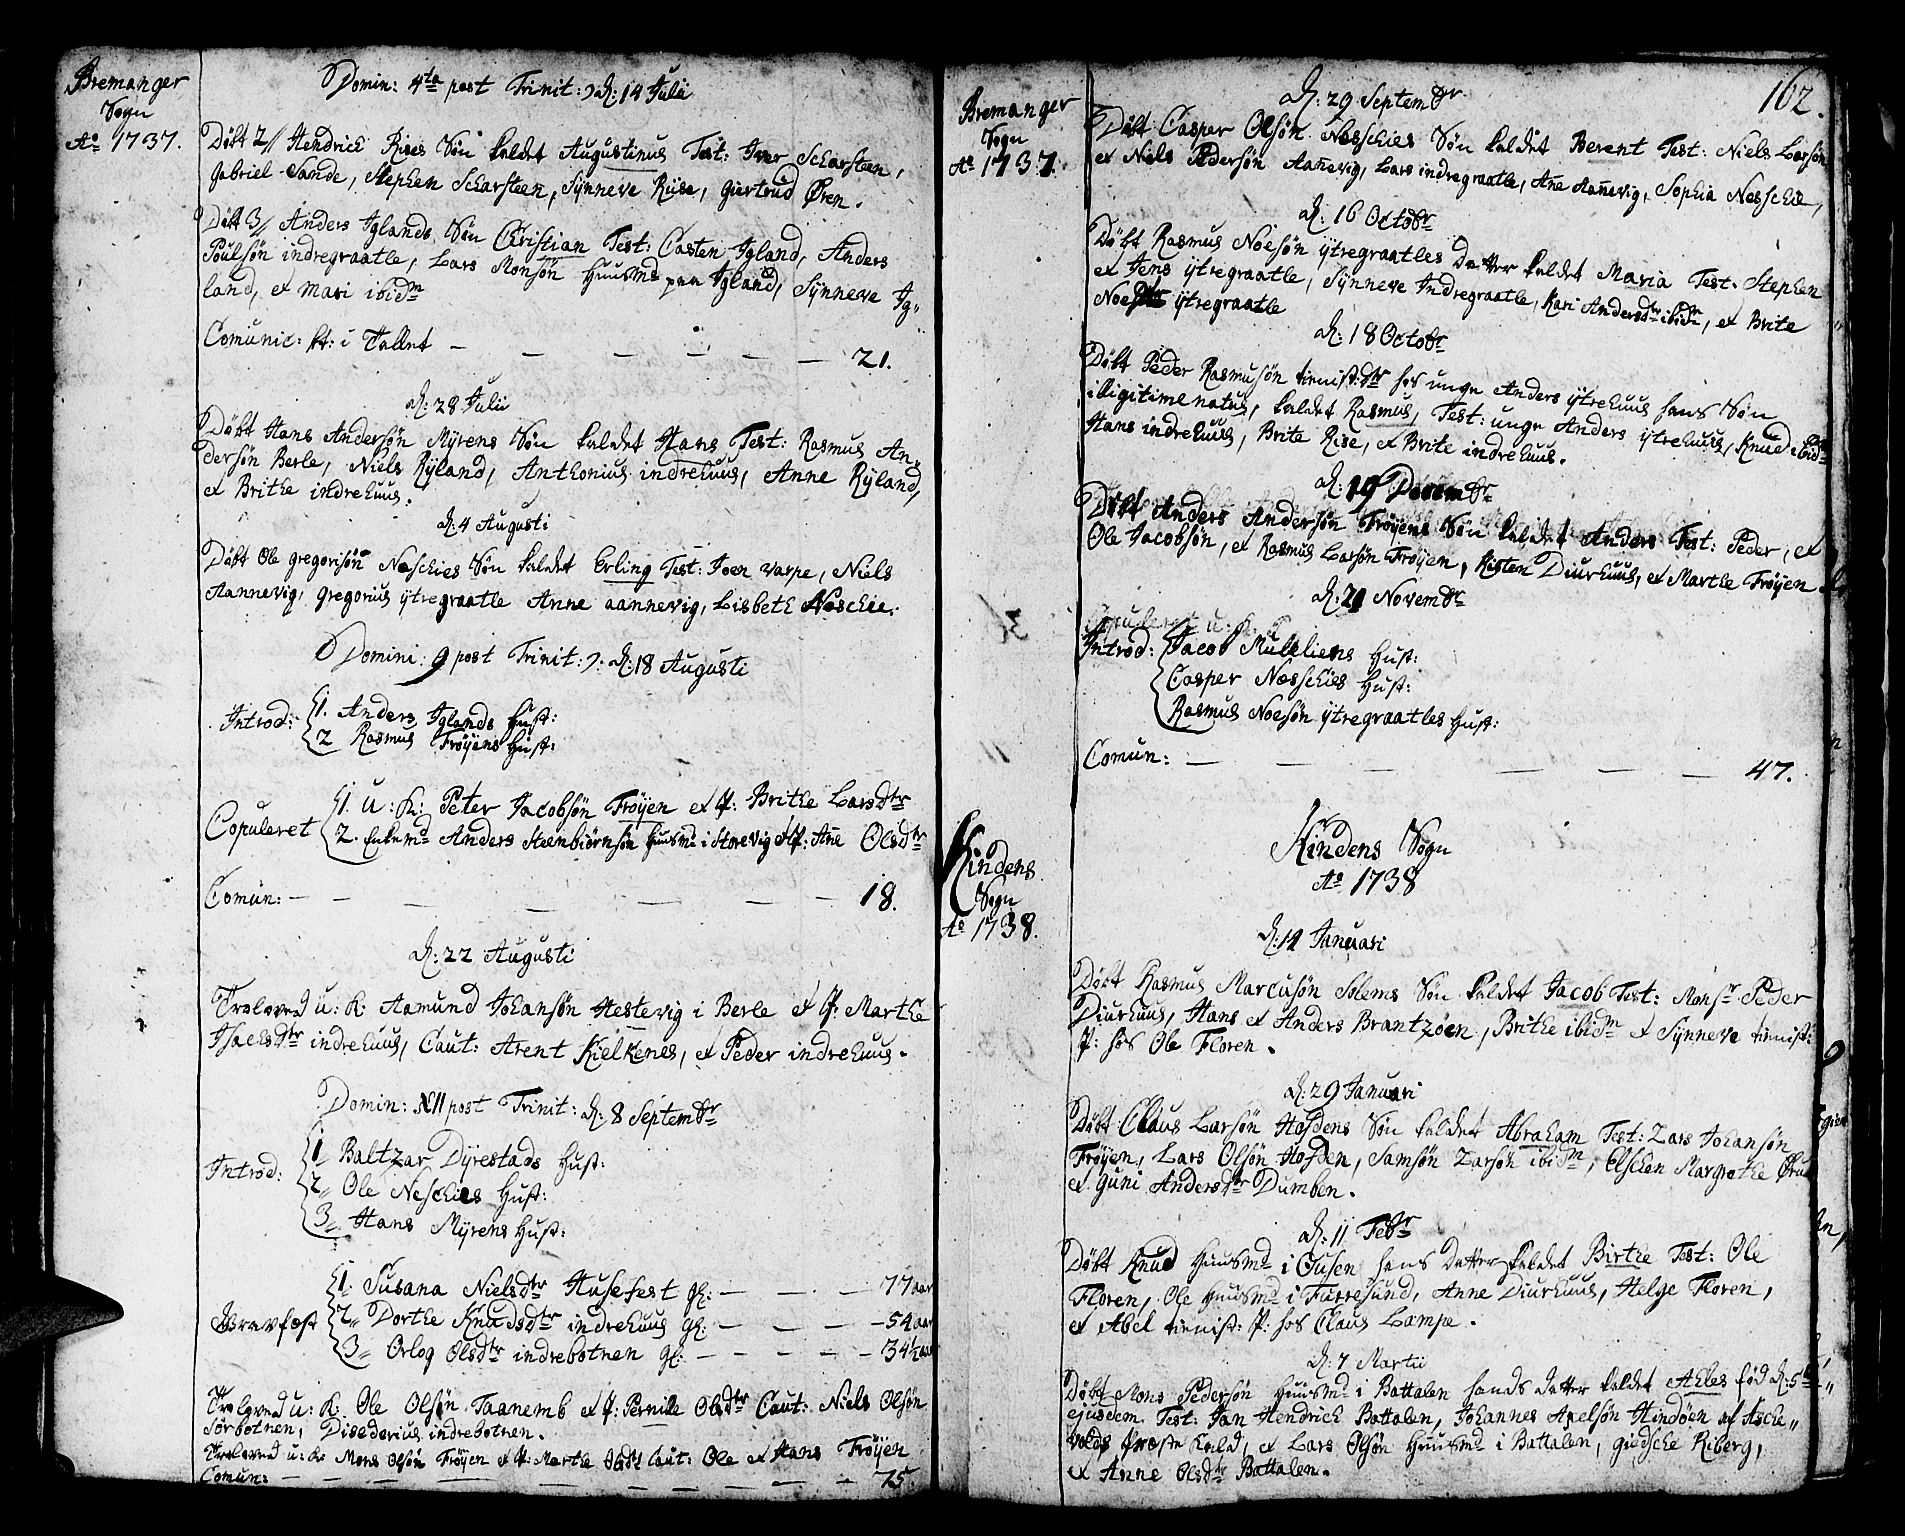 Bremanger
Sogn
Ao 1737.
Domin: 4ta post Trinit: D: 14 Julii
Døbt 2// Hendrich Rises Søn kaldet Augustinus Test: Iver Scharsteen,
Gabriel Sande, Stephen Scharsteen, Synneve Riise, Giertrud Øren.
Døbt 3// Anders Iglands Søn Christian Test: Casten Igland, Anders
Poulsøn indregraatle, Lars Monsøn Huusmd paa Igland, Synneve Ig„
land, et Mari ibidm
Comunic: st: i Tallet — — — — — — 21.
D: 28 Julii
Døbt Hans Andersøn Myrens Søn kaldet Hans Test: Rasmus An„
dersøn Berle, Niels Ryland, Anthonius indrehuus, Anne Ryland,
et Brithe indrehuus.
D: 4 Augusti
Døbt Ole Gregorisøn Neschies Søn kaldet Erling Test: Joen Varpe, Niels
Aannevig, Gregorius ytregraatle Anne aannevig, Lisbeth Neschie.
Domini: 9 post Trinit: D: 18 Augusti
Introd: 1. Anders Iglands Hust:
2 Rasmus Frøyens Hust:
Copuleret 1. u: K: Peter Jacobsøn Frøyen et P: Brithe Larsdtr
2. Enkemd Anders Steenbiørnsøn Huusmd i Storevig et P: Ane Olsdtr
Comun: — — — — — — 18.
D: 22 Augusti
Troloved u: K: Aamund Johansøn Hestevig i Berle et P: Marthe
Isachsdtr indrehuus, Caut: Arent Kielkenes, et Peder indrehuus.
Domin: XII post Trinit: D: 8 Septembr
Introd: 1 Baltzar Dyrestads Hust:
2,, Ole Neschies Hust:
3,, Hans Myrens Hust:
Gravfæst 1. Susana Nielsdtr Husefest gl: — — — 77 aar
2,, Dorthe Knudsdtr indrehuus gl: — — — 54 aar
3,, Orlog Olsdtr indrebotnen gl: — — — 34½ aar
Troloved u: K: Ole Olsøn Taanemb et P: Pernille Olsdtr Caut: Niels Olsøn
Sørbotnen, Disederius indrebotnen.
Troloved u: K: Mons Olsøn Frøyen et P: Marthe Olsdtr Caut: Ole et Hans Frøyen
Comun: — — — — — — 75.
162.
Bremanger
Sogn
Ao 1737.
D: 29 Septembr
Døbt Casper Olsøn Nesschies Søn kaldet Berent Test: Niels Larsøn
et Niels Pedersøn Aanevig, Lars indregraatle, Ane Aanevig, Sophia Nesschie,
D: 16 Octobr
Døbt Rasmus Noesøn ytregraatles Datter kaldet Maria Test. Stephen
et Jens ytregraatle, Synneve Indregraatle, Kari Andersdtr ibidm, et Brite
Noesdtr ytregraatle
D: 18 Octobr
Døbt Peder Rasmusøn tienist:dtr hos unge Anders ytrehuus hans Søn
illigitime natus, kaldet Rasmus, Test: unge Anders ytrehuus, Knud ibidm
Hans indrehuus, Brite Rise, et Brite indrehuus.
D: 19 Decembr
Døbt Anders Andersøn Frøyens Søn kaldet Anders Test: Peder, et
Ole Jacobsøn, et Rasmus Larsøn Frøyen, Kisten Diurhuus, et Marthe Frøyen
D: 21 Novembr
Copuleret u: K.
Introd: Jacob Mulehiens Hust:
Casper Nesschies Hust:
Rasmus Noesøn ytregraatles Hust:
Comun: — — — — — — 47.
Kindens Sogn
Ao 1738
Kindens
Sogn
Ao 1738.
D: 14 Januari
Døbt Rasmus Marcusøn Solems Søn kaldet Jacob Test: Monsr Peder
Diurhuus, Hans et Anders Brantzøen, Brithe ibidm et Synneve tienist:
P: hos Ole Floren.
D: 29 Januari
Døbt Claus Larsøn Hofdens Søn kaldet Abraham Test: Lars Johansøn
Frøyen, Lars Olsøn Hofden, Samsøn Larsøn ibidm, Elschen Margrethe
et Guni Andersdtr Dumben.
D: 11 Febr
Døbt Knud Huusmd i Gusen hans Datter kaldet Birthe Test: Ole
Floren, Ole Huusmd i Furresund, Anne Diurhuus, Helge Floren,
et Abel tienist: P: hos Claus Lampe.
D: 7 Martii
Døbt Mons Pedersøn Huusmd i Battalen hands Datter kaldet Ahles fød D: 5te
ejusdem Test: Jan Hendrich Battalen, Johannes Axelsøn Hindøen af Asche„
volds Præste Knld, et Lars Olsøn Huusmd i Battalen, Giedsche Riberg,
et Anne Olsdtr Battalen.